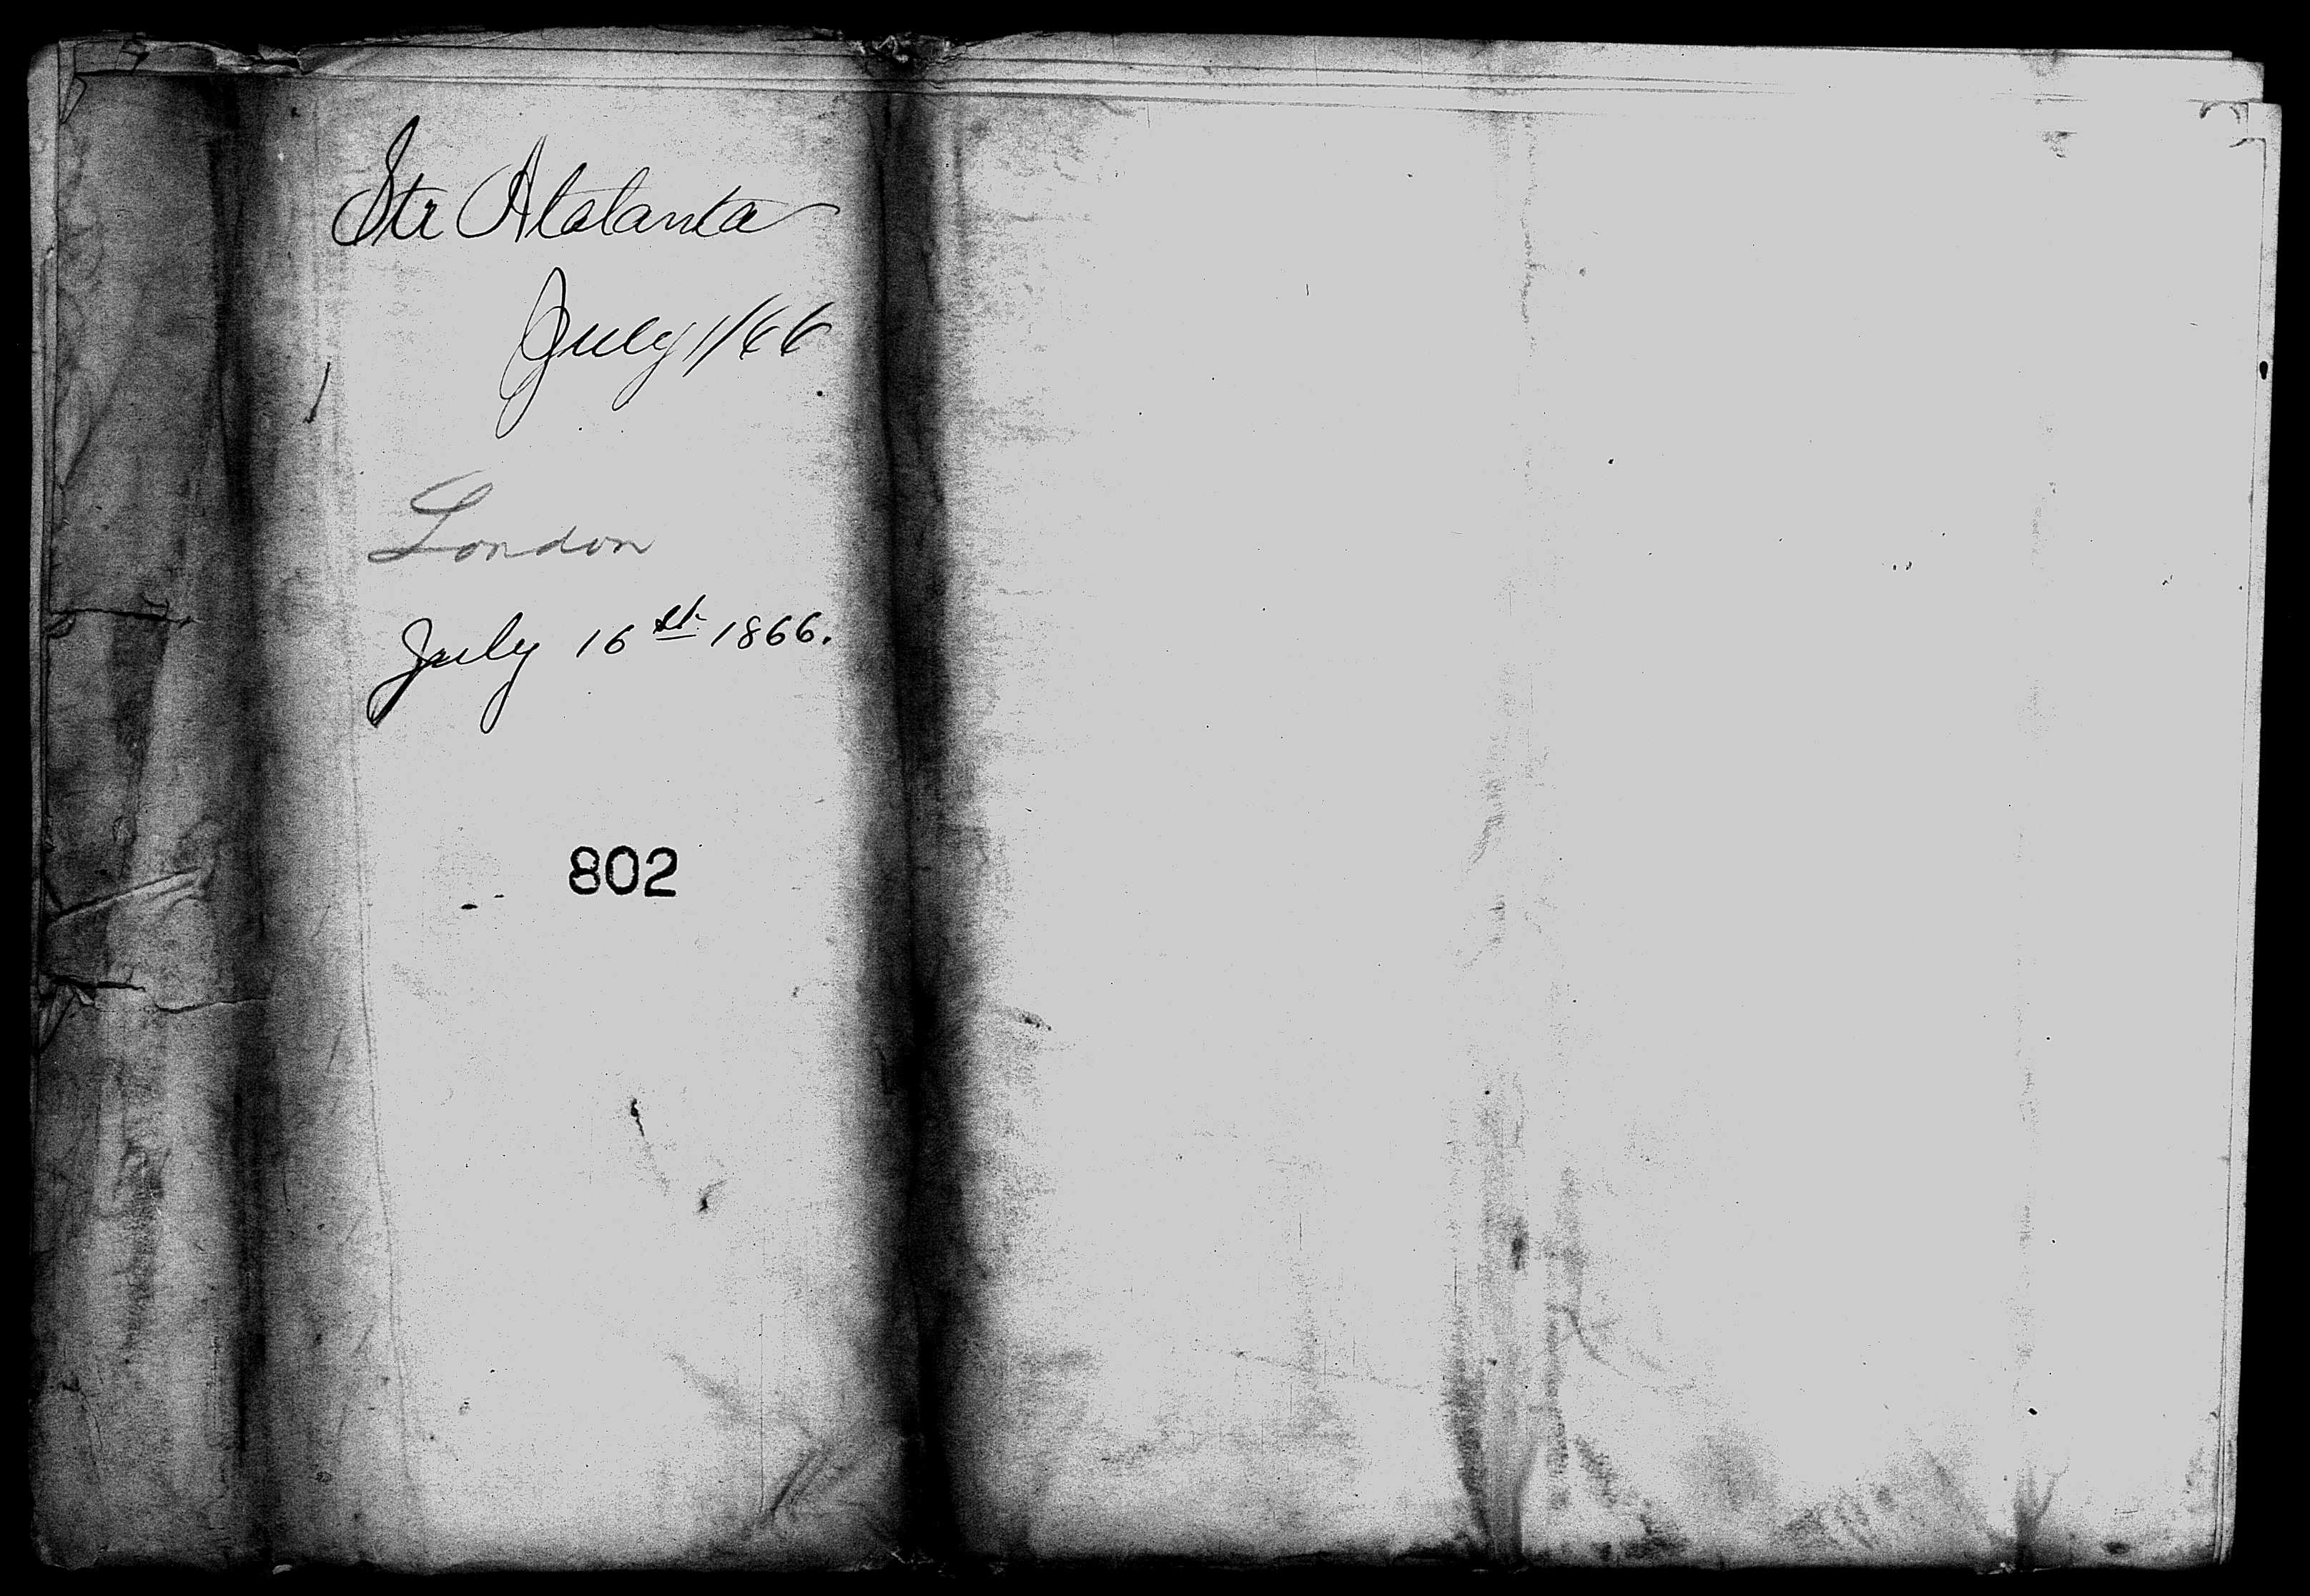 Str Atalanta
July 1/66
London
July 16th 1866.
802